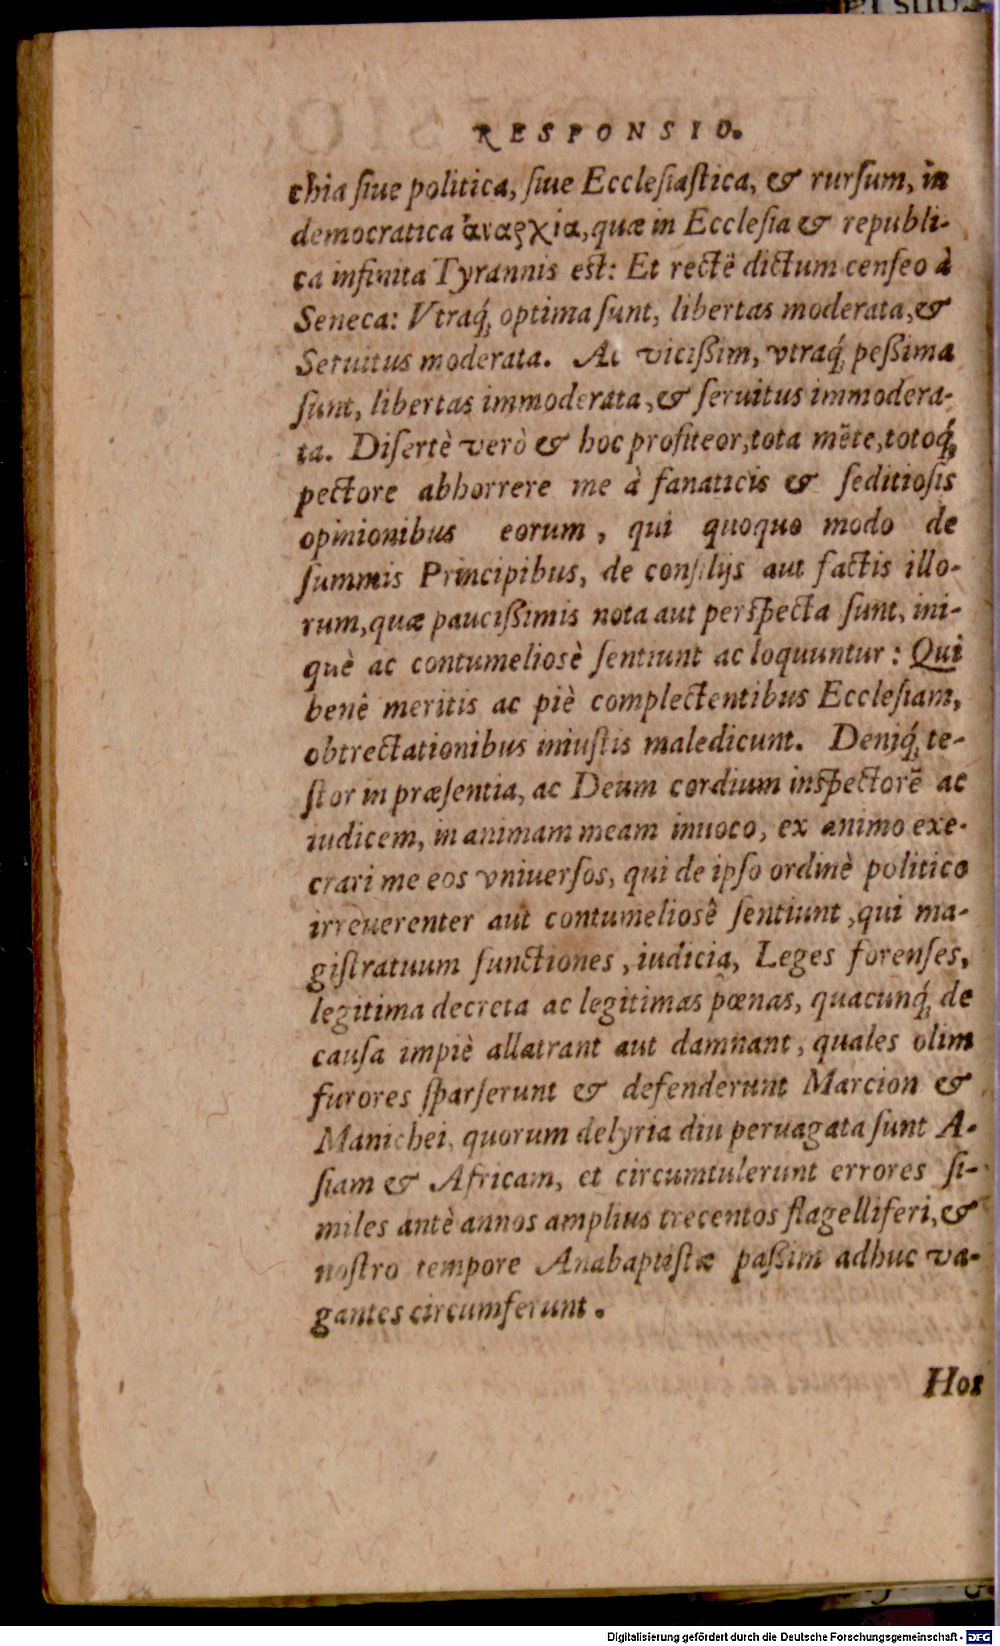 RESPONSIO.
chia ſiue politica, ſiue Eccleſiaſtica, & rurſum, in
democratica ἀναρχία, quæ in Eccleſia & republi-
ca infinita Tyrannis est: Et rectè dictum cenſeo à
Seneca: Vtraq́; optima ſunt, libertas moderata, &
Seruitus moderata. Ac viciſsim, vtraq́; peſsima
ſunt, libertas immoderata, & ſeruitus immodera-
ta. Diſertè verò & hoc profiteor, tota mẽte, totoq́;
pectore abhorrere me à fanaticis & ſeditioſis
opinionibus eorum, qui quoquo modo de
ſummis Principibus, de conſilijs aut factis illo-
rum, quæ pauciſsimis nota aut perſpecta ſunt, ini-
què ac contumelioſè ſentiunt ac loquuntur: Qui
benè meritis ac piè complectentibus Eccleſiam,
obtrectationibus iniuſtis maledicunt. Deniq́; te-
ſtor in præſentia, ac Deum cordium inſpectorẽ ac
iudicem, in animam meam inuoco, ex animo exe-
crari me eos vniuerſos, qui de ipſo ordinè politico
irreuerenter aut contumelioſè ſentiunt, qui ma-
giſtratuum functiones, iudicia, Leges forenſes,
legitima decreta ac legitimas pœnas, quacunq́; de
cauſa impiè allatrant aut damnant, quales olim
furores ſparſerunt & defenderunt Marcion &
Manichei, quorum delyria diu peruagata ſunt A-
ſiam & Africam, et circumtulerunt errores ſi-
miles antè annos amplius trecentos flagelliferi, &
noſtro tempore Anabaptiſtæ paſsim adhuc va-
gantes circumferunt.
Hos
Digitalisierung gefördert durch die Deutsche Forschungsgemeinschaft - DFG